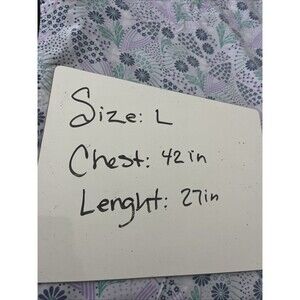 Size: L
Chest: 42 in
Lenght: 27in